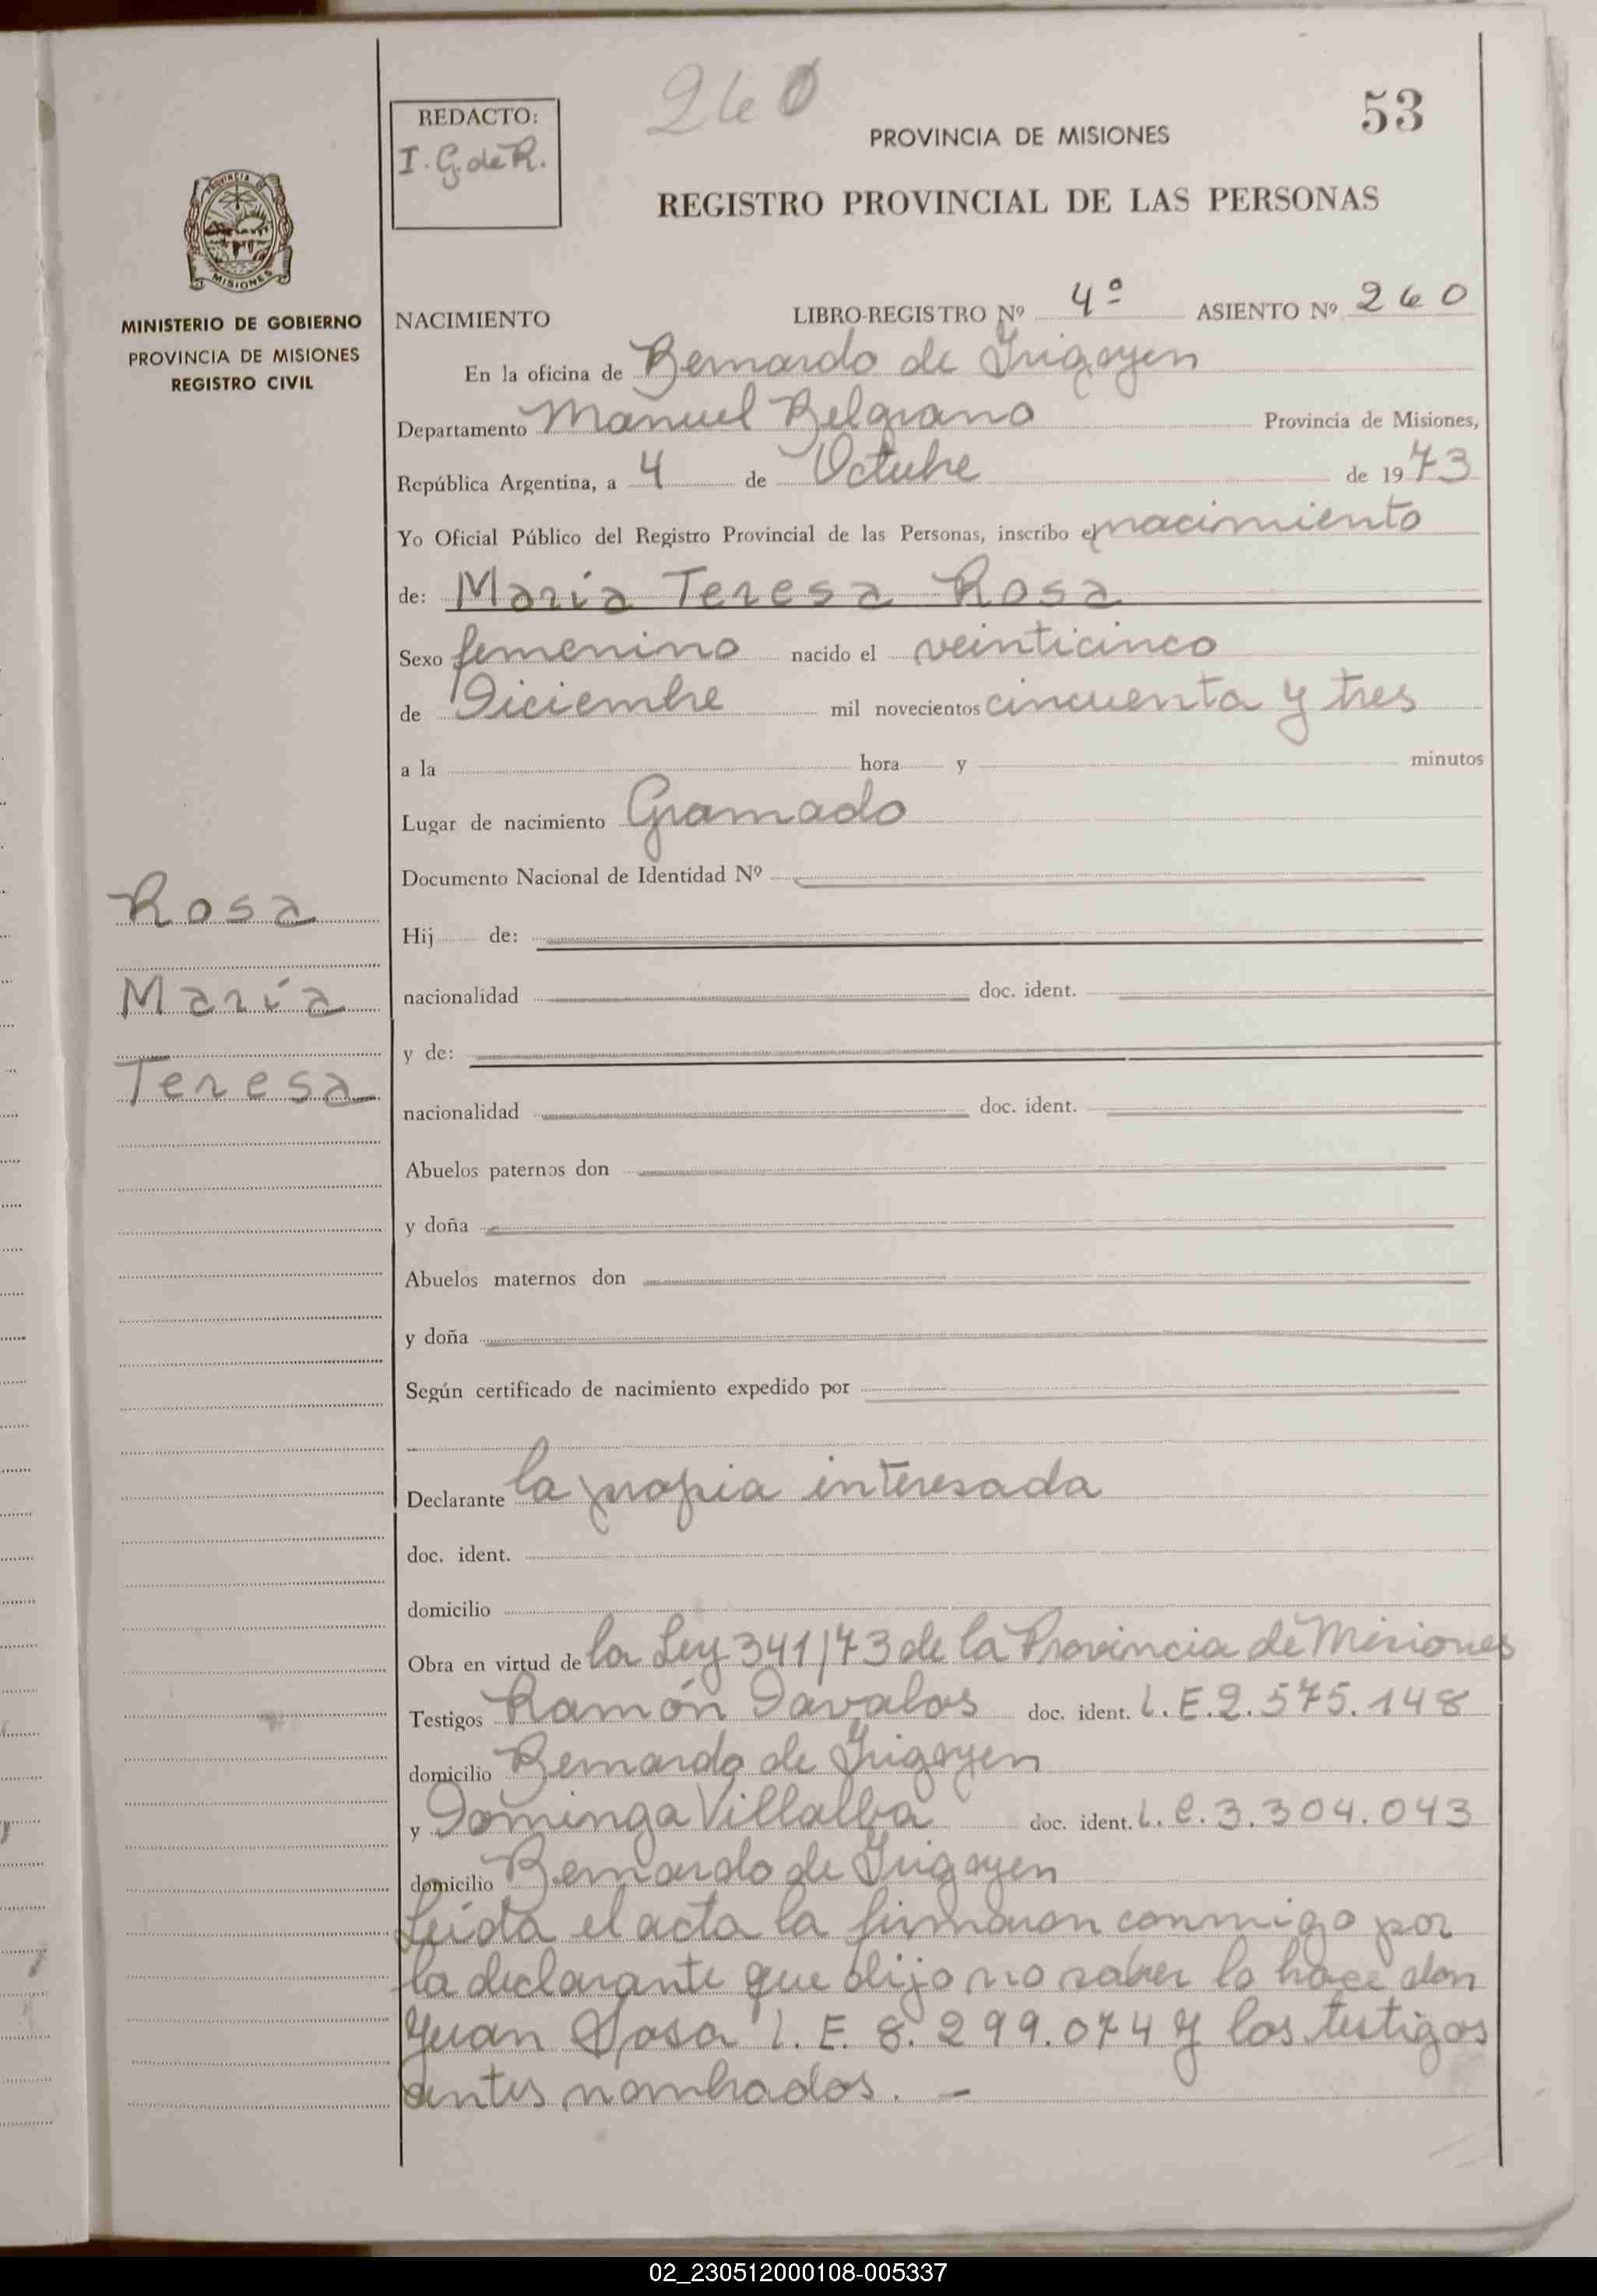 260
53
REDACTO:
I. G. de R.
PROVINCIA DE MISIONES
REGISTRO PROVINCIAL DE LAS PERSONAS
PROVINCIA DE
MISIONES
MINISTERIO DE GOBIERNO
PROVINCIA DE MISIONES
REGISTRO CIVIL
NACIMIENTO LIBRO-REGISTRO Nº 4º ASIENTO Nº 260
En la oficina de Bernardo de Irigoyen
Departamento Manuel Belgrano Provincia de Misiones,
República Argentina, a 4 de Octubre de 1973
Yo Oficial Público del Registro Provincial de las Personas, inscribo el nacimiento
de: Maria Teresa Rosa
Sexo femenino nacido el veinticinco
de Diciembre mil novecientos cincuenta y tres
a la hora y minutos
Lugar de nacimiento Gramado
Documento Nacional de Identidad Nº
Rosa
María
Teresa
Hij de:
nacionalidad doc. ident.
y de:
nacionalidad doc. ident.
Abuelos paternos don
y doña
Abuelos maternos don
y doña
Según certificado de nacimiento expedido por
Declarante la propia interesada
doc. ident.
domicilio
Obra en virtud de la Ley 341/73 de la Provincia de Misiones
Testigos Ramón Davalos doc. ident. L. E. 2.575.148
domicilio Bernardo de Irigoyen
y Dominga Villalba doc. ident. L. C. 3.304.043
domicilio Bernardo de Irigoyen
Leida el acta la firmaron conmigo por
la declarante que dijo no saber lo hace don
Juan Sosa L. E. 8.299.074 y los testigos
antes nombrados. -
02_230512000108-005337